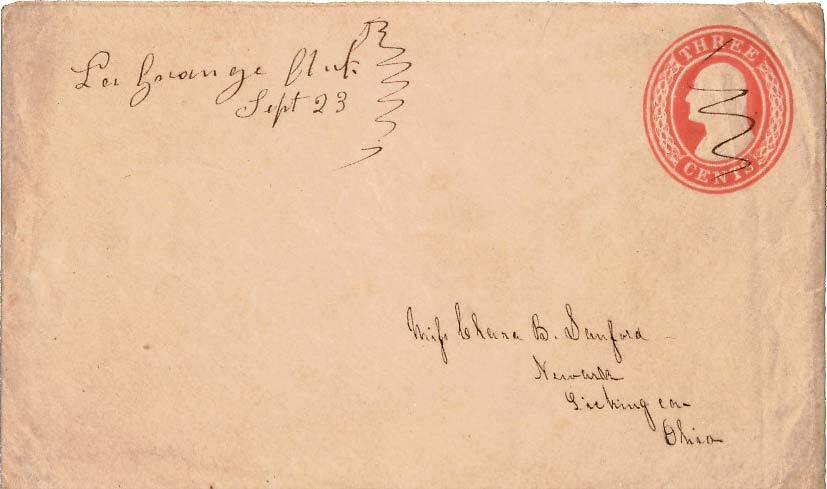 La Grange
Sept 23
THREE
CENTS
Miss Clara B. Sanford
Newark
Licking co
Ohio